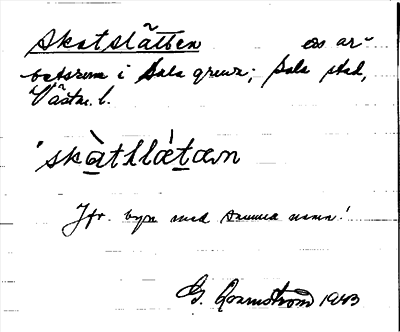 Skatslåtten ess ar-
betsrum i Sala gruva; Sala stad,
Västm. l.
'skàthlétæn
Jfr. byn med samma namn!
G. Ramström 1943